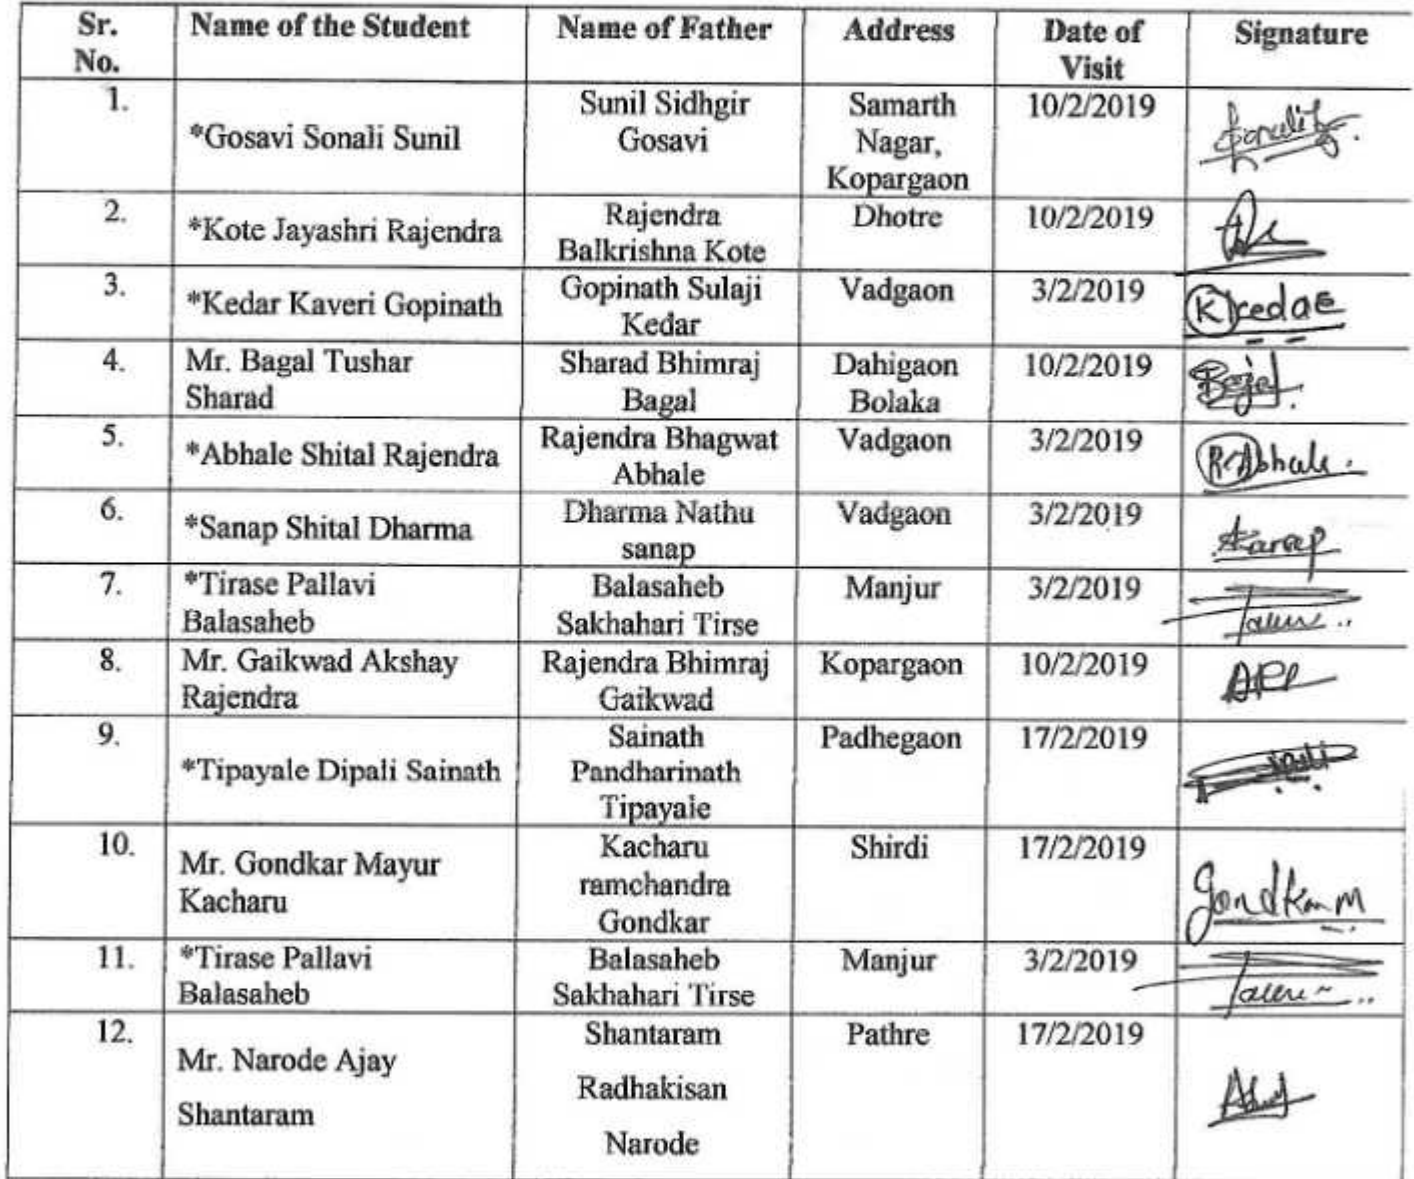 Sr. No. Name of the Student Name of Father Address Date of Visit Signature
1. *Gosavi Sonali Sunil Sunil Sidhgir Gosavi Samarth Nagar, Kopargaon 10/2/2019
2. *Kote Jayashri Rajendra Rajendra Balkrishna Kote Dhotre 10/2/2019
3. *Kedar Kaveri Gopinath Gopinath Sulaji Kedar Vadgaon 3/2/2019
4. Mr. Bagal Tushar Sharad Sharad Bhimraj Bagal Dahigaon Bolaka 10/2/2019
5. *Abhale Shital Rajendra Rajendra Bhagwat Abhale Vadgaon 3/2/2019 Abhale.
6. *Sanap Shital Dharma Dharma Nathu sanap Vadgaon 3/2/2019
7. *Tirase Pallavi Balasaheb Balasaheb Sakhahari Tirse Manjur 3/2/2019
8. Mr. Gaikwad Akshay Rajendra Rajendra Bhimraj Gaikwad Kopargaon 10/2/2019
9. *Tipayale Dipali Sainath Sainath Pandharinath Tipayale Padhegaon 17/2/2019
10. Mr. Gondkar Mayur Kacharu Kacharu ramchandra Gondkar Shirdi 17/2/2019
11. *Tirase Pallavi Balasaheb Balasaheb Sakhahari Tirse Manjur 3/2/2019
12. Mr. Narode Ajay Shantaram Shantaram Radhakisan Narode Pathre 17/2/2019